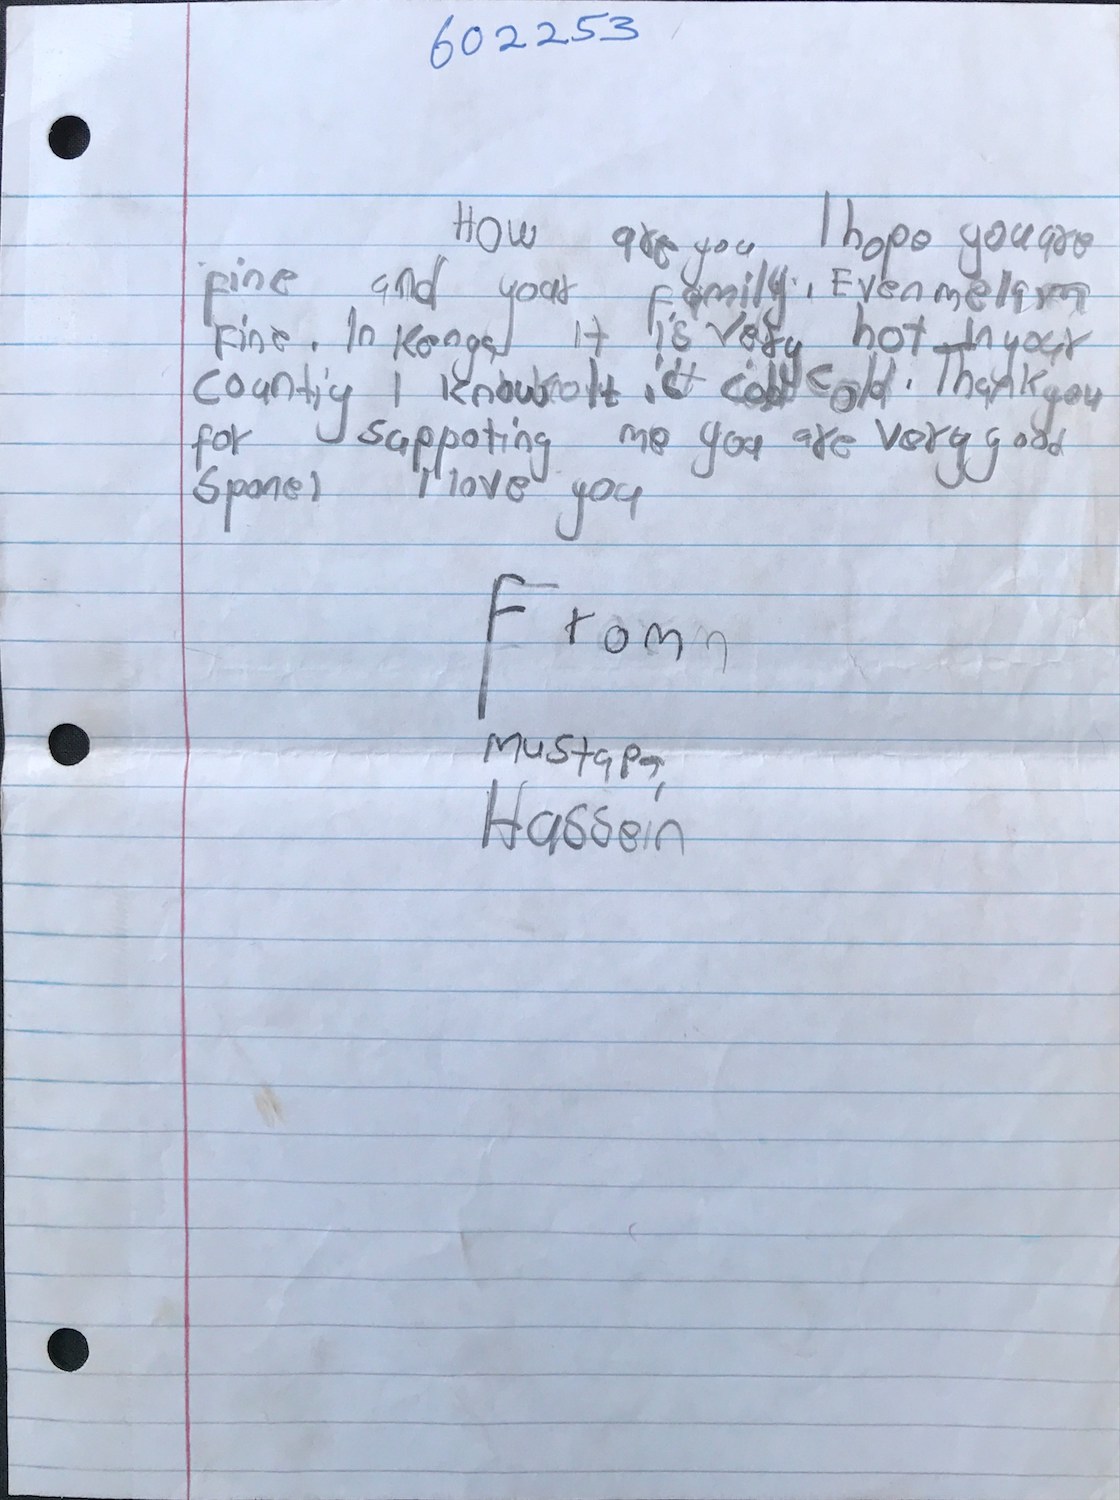 602253
How are you I hope you are
fine and your family. Even me I am
Fine. In Kenya it is very hot In your
Countiy I know it cold. Thank you
for suppoting me you are very good
Sponel I love you
From
Mustapa
Hassein